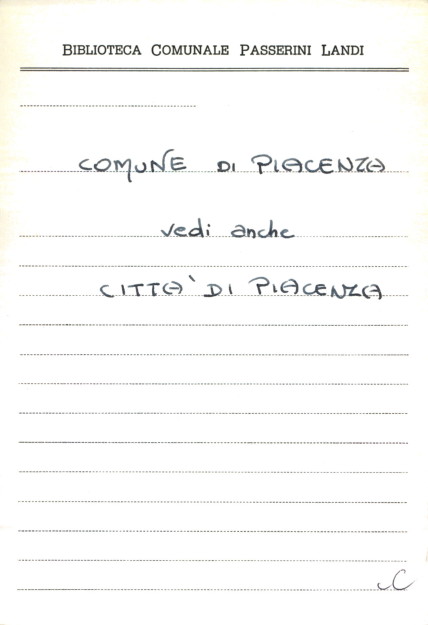 BIBLIOTECA COMUNALE PASSERINI LANDI
COMUNE DI PIACENZA
vedi anche
CITTA` DI PIACENZA